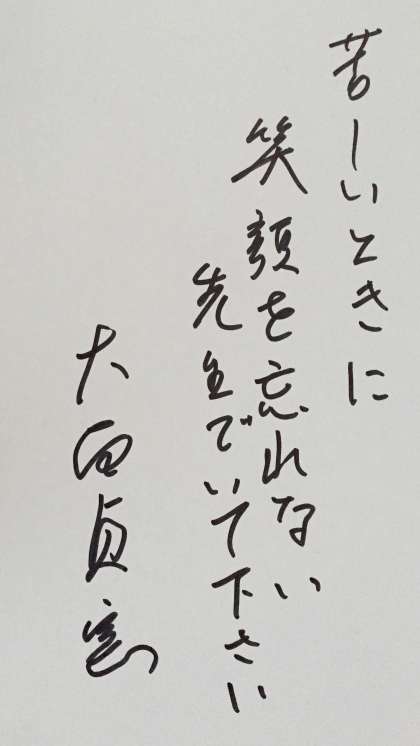 苦しいときに
笑顔を忘れない
先生でいて下さい
大西貞憲